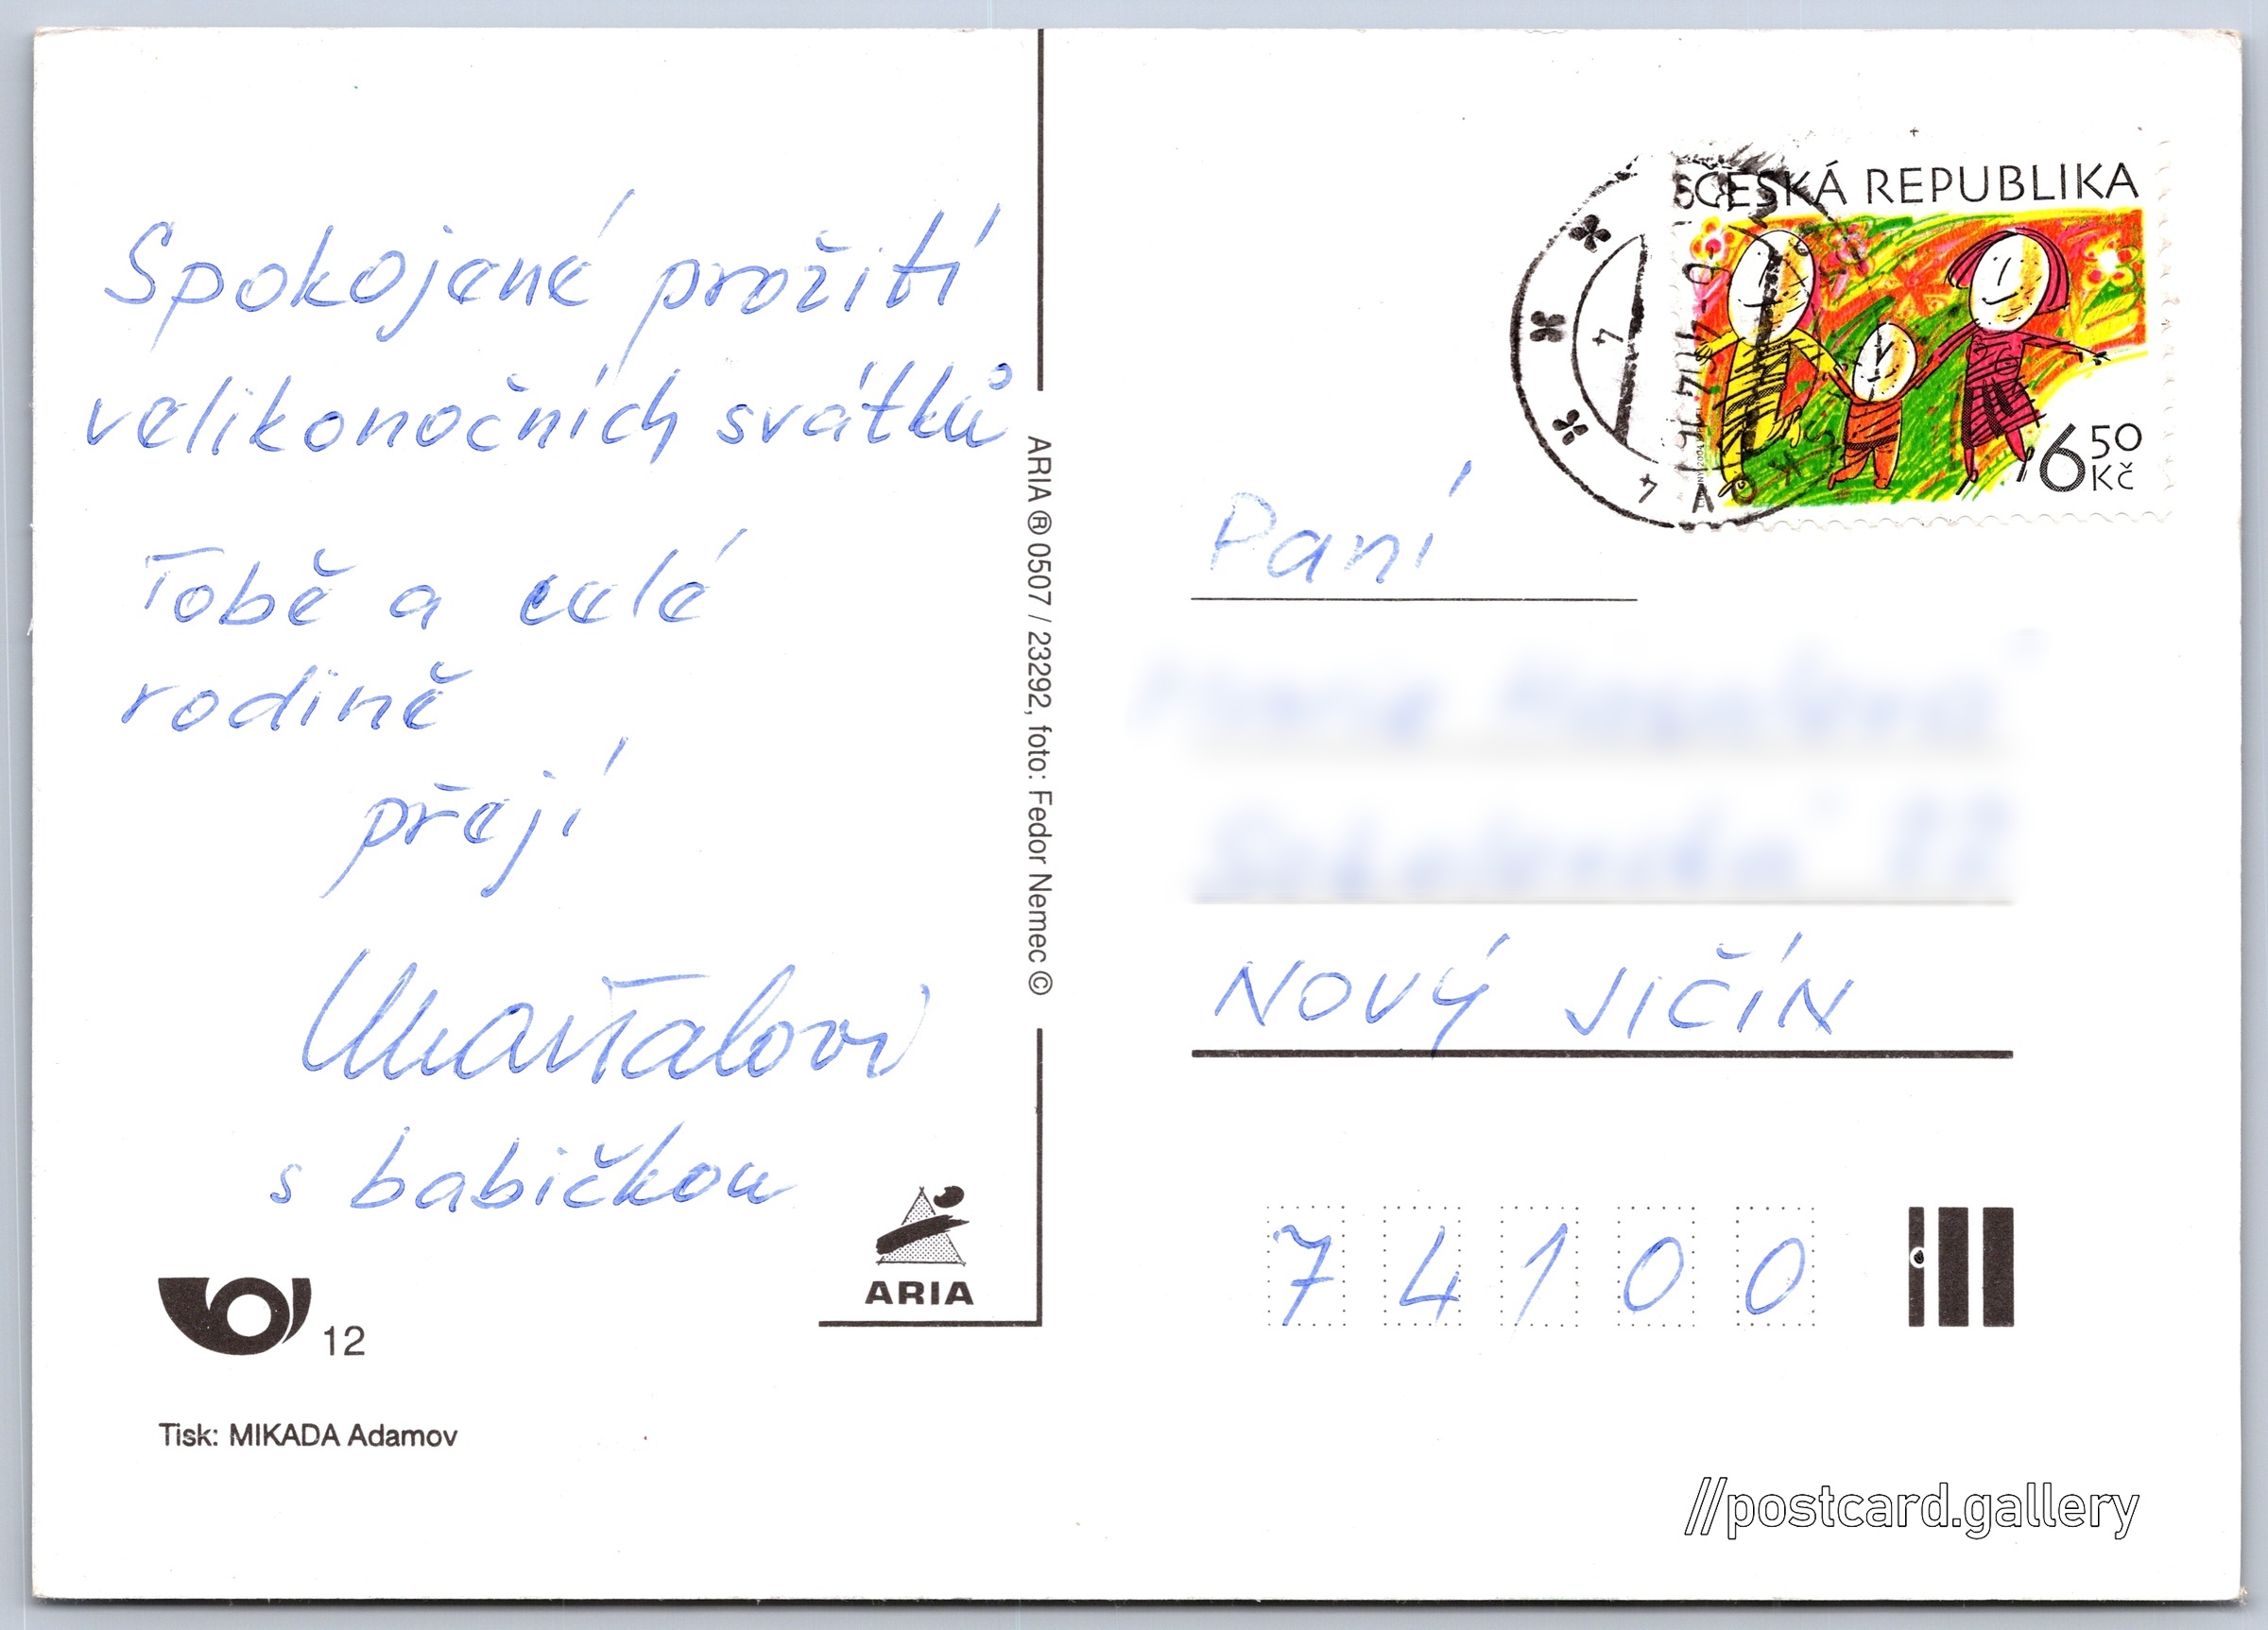 Spokojené prožití
velikonočních svátků
Tobě a celé
rodině
přejí
s babičkou
12
Tisk: MIKADA Adamov
ARIA
ARIA ® 0507 / 23292, foto: Fedor Nemec ©
ČESKÁ REPUBLIKA
6 50 Kč
Paní
NOVÝ JIČÍN
7 4 1 0 0
//postcard.gallery